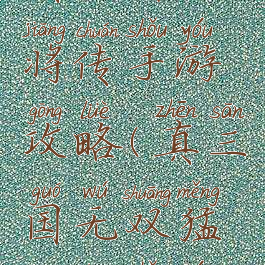 jiàng chuán shǒu yóu
将传手游
gōng lüè zhēn sān
攻略(真三
guó wú shuāng měng
国无双猛